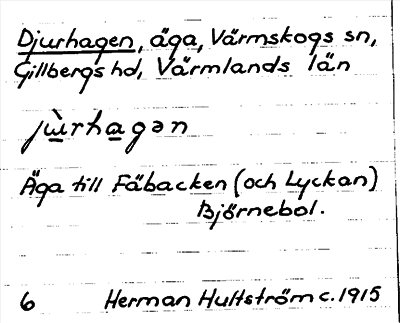 Djurhagen, äga, Värmskogs sn,
Gillbergs hd, Värmlands län
jùrhagən
Äga till Fäbacken (och Lyckan)
Björnebol.
6 Herman Hultström c. 1915